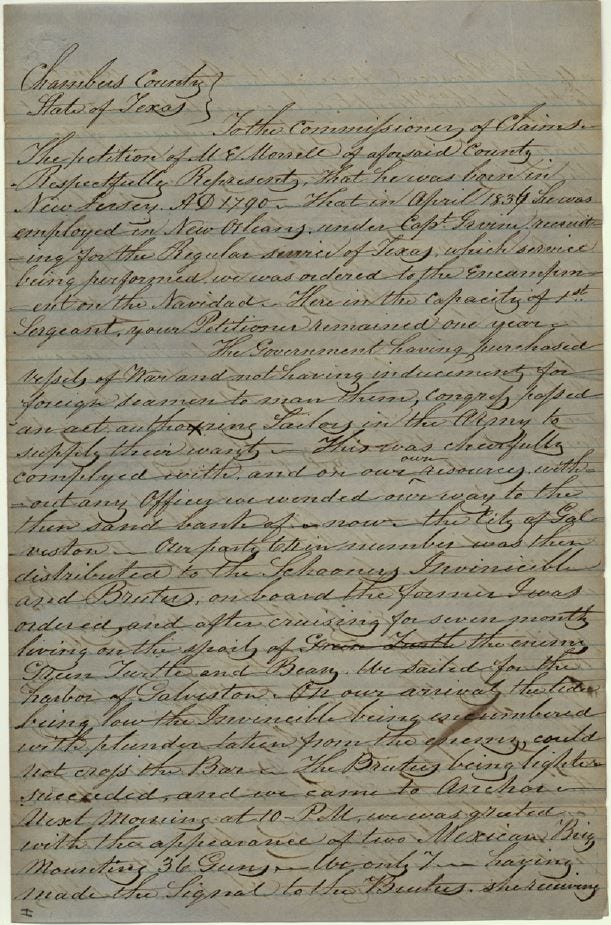 Chambers County }
State of Texas }
To the Commissioner of Claims.
The petition of M E Morrell of aforesaid County
Respectfully Represents, That he was born in
New Jersey. AD 1790 - That in April 1836 he was
employed in New Orleans, under Capt Irwin, recruit-
-ing for the Regular service of Texas, which service
being performed, we was ordered to the Encampm-
-ent on the Navidad - Here in the capacity of 1st
Sergeant, your Petitioner remained one year -
The Government having purchased
vessels of War and not having inducements for
foreign seamen to man them, congress passed
an act authorising Sailors in the Army to
supply their wants - This was cheerfully
complyed with, and on our own resources, with-
-out any Officer we wended our way to the
then sand bank of - now - the City of Gal-
-veston - Our party 64 in number was then
distributed to the Schooners Invincible
and Brutus, on board the former I was
ordered, and after cruising for seven month
living on the spoils of Green Turtle the enemy
Green Turtle and Beans. We sailed for the
harbor of Galveston. On our arrival, the tide
being low the Invincible being encumbered
with plunder taken from the enemy, could
not cross the Bar - The Brutus being lighter
succeeded, and we came to Anchor -
Next Morning at 10 - P.M, we was greeted
with the appearance of two Mexican Brigs
Mounting 36 Guns - We only 7 - having
made the Signal to the Brutus. she receiving